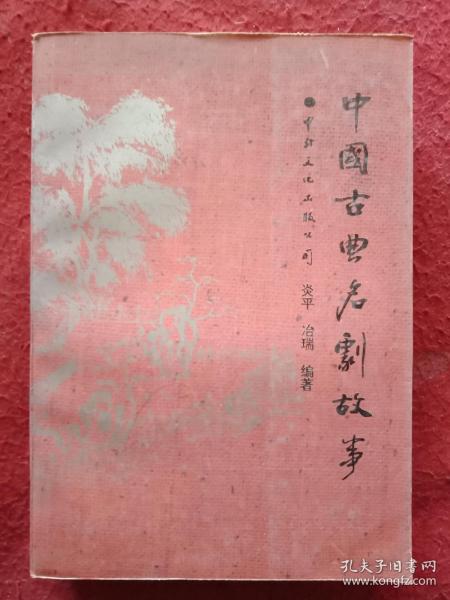 中國古典名劇故事
中外文化出版公司
炎平 冶瑞 编著
孔夫子旧书网
www.kongfz.com